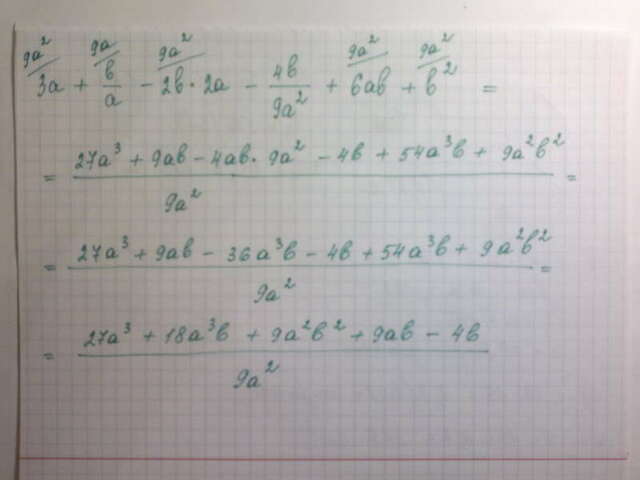 9a² 9a 9a² 9a² 9a²
3a + b/a - 2b · 2a - 4b/9a² + 6ab + b² =
= (27a³ + 9ab - 4ab · 9a² - 4b + 54a³b + 9a²b²)/9a² =
= (27a³ + 9ab - 36a³b - 4b + 54a³b + 9a²b²)/9a² =
= (27a³ + 18a³b + 9a²b² + 9ab - 4b)/9a²